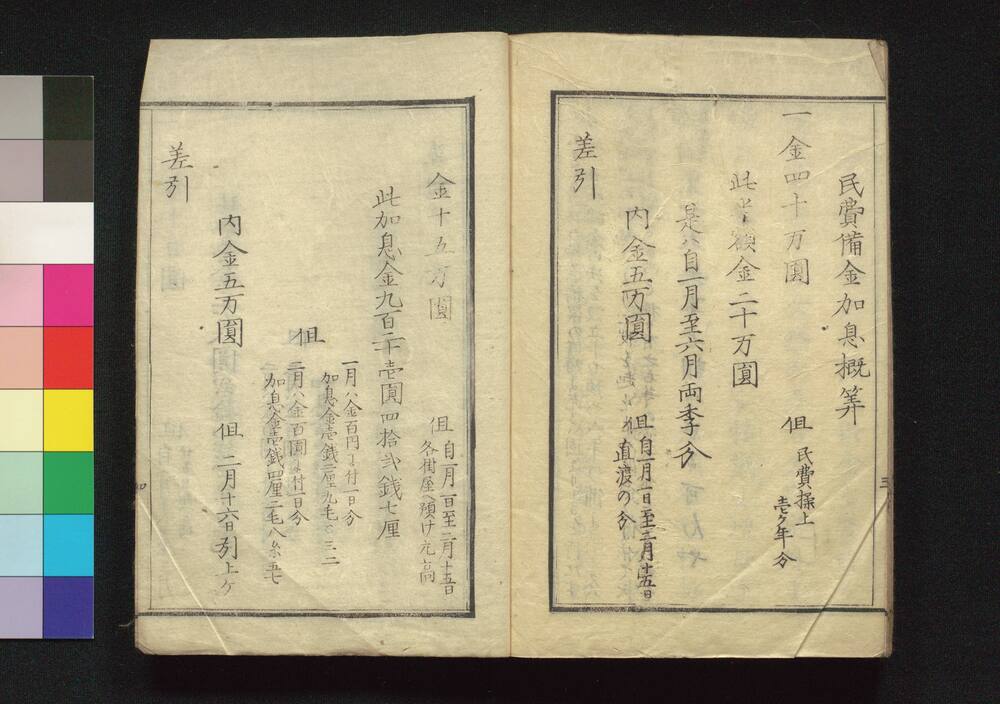 民費備金加息概筭
一金四十万圓 但 民費探上
壱ケ年分
此半額金二十万圓
是ハ自一月至六月両季分
内金五万圓 但自一月一日至二月十五日
直渡の分
差引
三
金十五万圓 但 自一月一日至二月十五日
各街屋へ預け元高
此加息金九百二十壱圓四拾弐銭七厘
但 一月ハ金百円ニ付一日分
加息金壱銭二厘九毛〇三二
二月ハ金百圓ニ付一日分
加息金壱銭四厘二毛八糸五七
内金五万圓 但 二月十六日引上ケ
差引
四